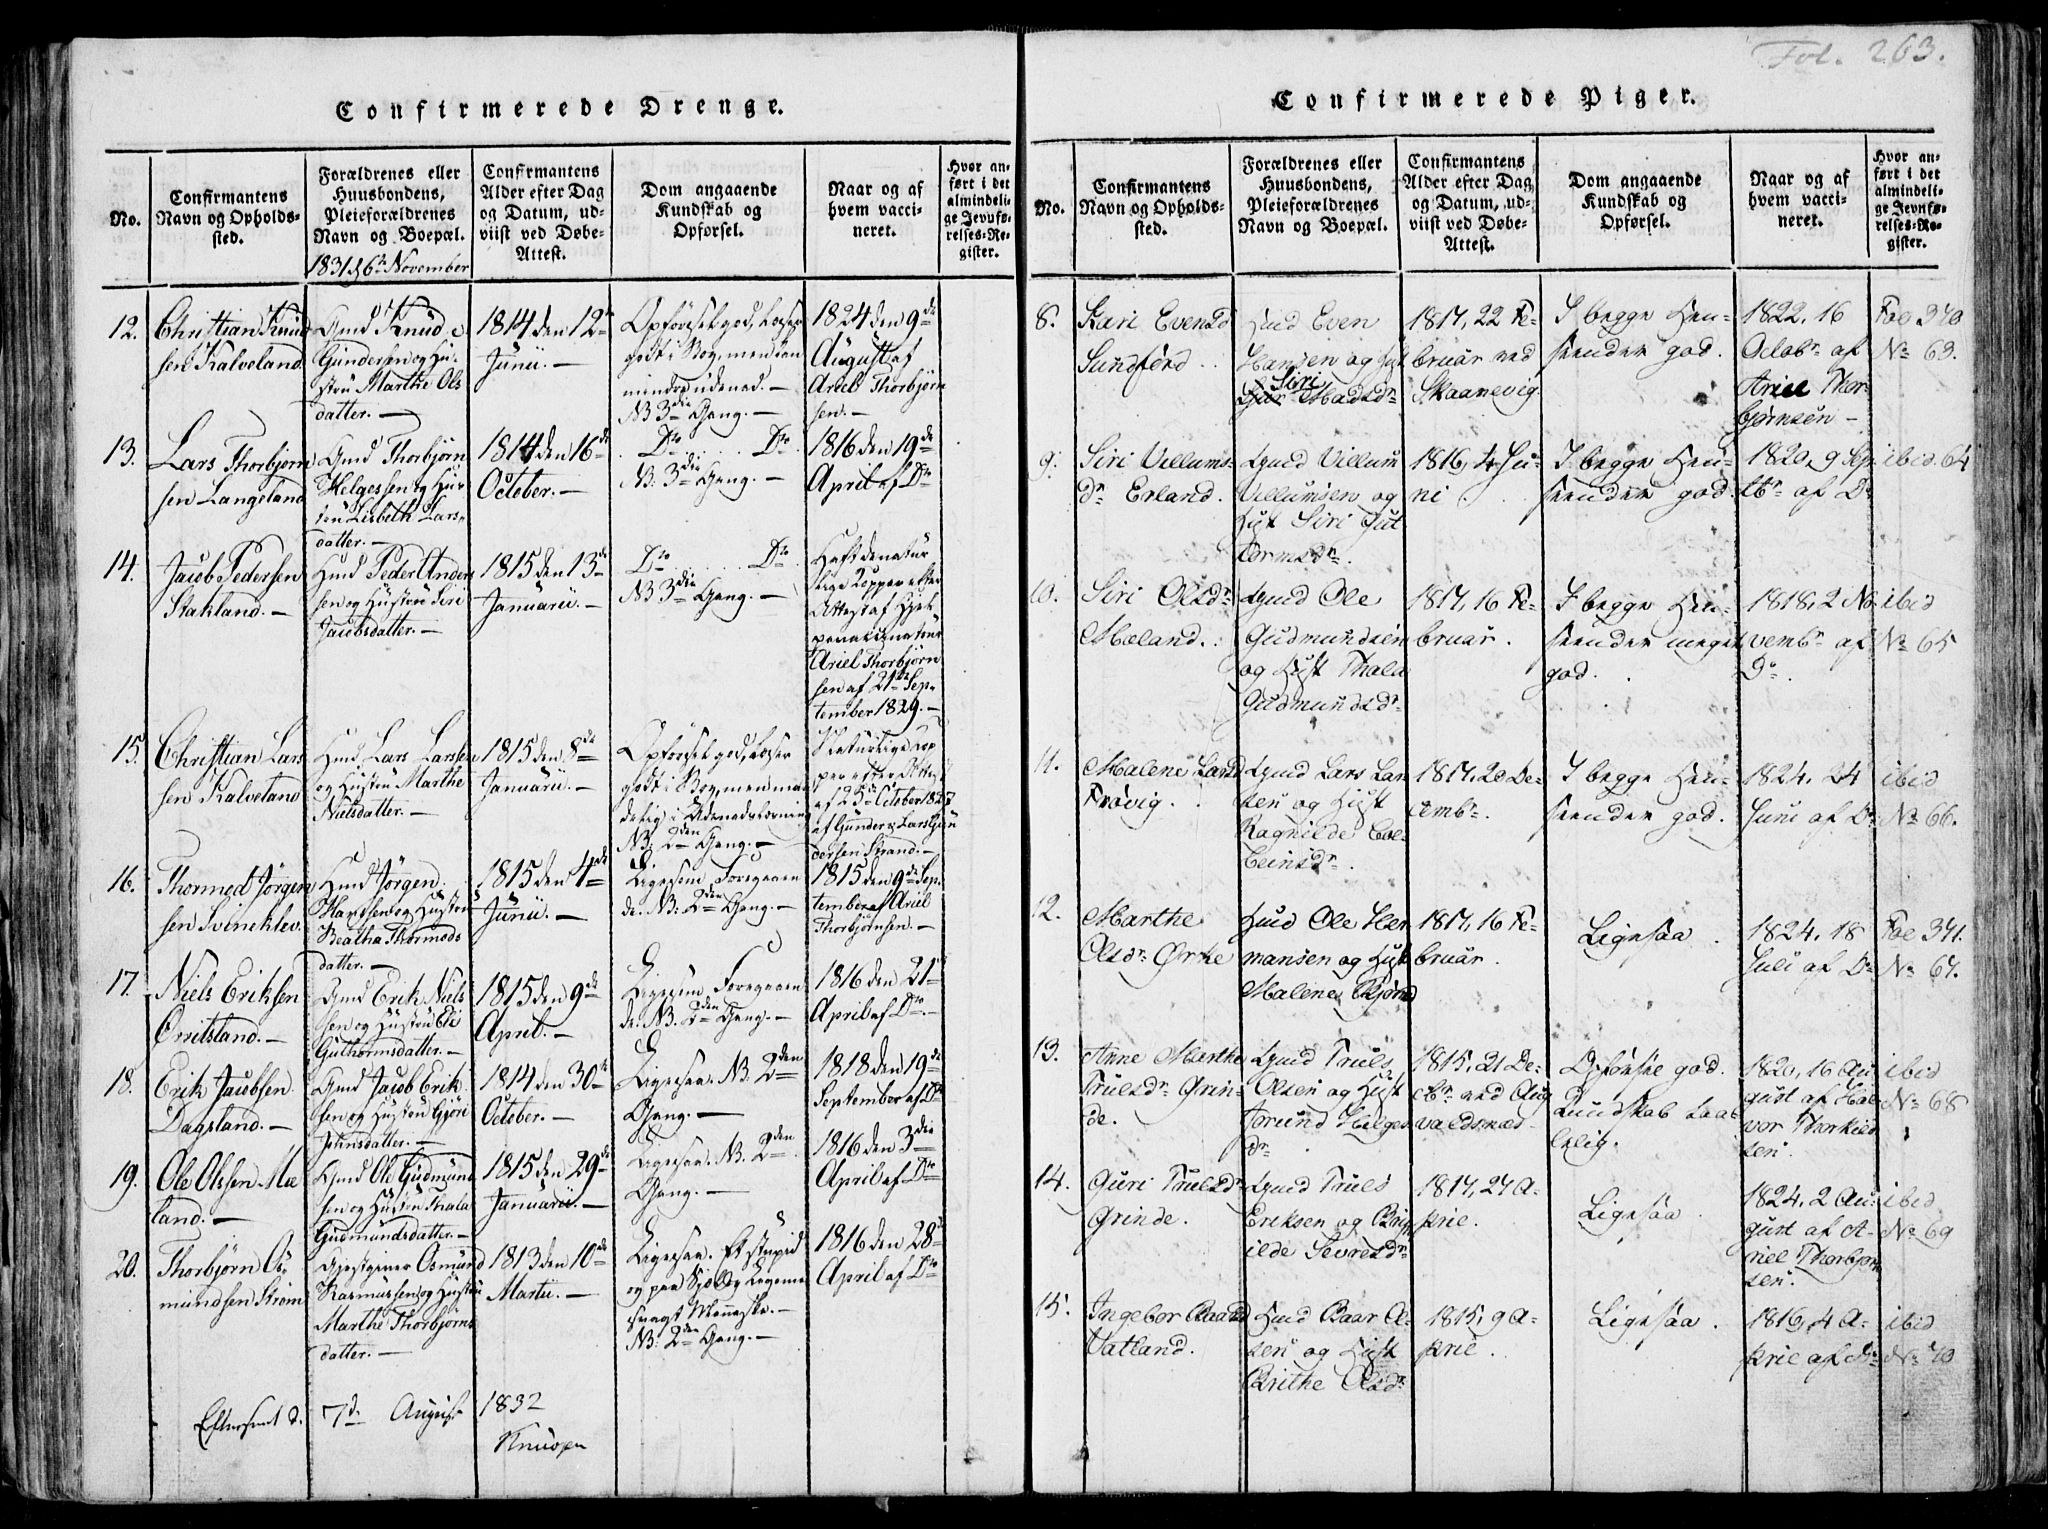 Fol. 263.
Confirmerede Drenge.
No.
Confirmantens
Navn og Opholds-
sted.
Forældrenes eller
Huusbondens,
Pleieforældrenes
Navn og Boepæl.
1831 d 6te November
Confirmantens
Alder efter Dag
og Datum, ud-
viist ved Døbe-
Attest.
Dom angaaende
Kundskab og
Opførsel.
Naar og af
hvem vacci-
neret.
Hvor an-
ført i det
almindeli-
ge Jevnfø-
relses-Re-
gister.
12.
Christian Knud
sen Kalveland
Gmd Knud
Gundersen og Hu-
stru Marthe Ols
datter. —
1814 den 12te
Junii. —
Opførsel god, læser
godt i Bog, men kan
mindre udenad. —
NB 3die Gang. —
1824 den 9de
August af
Ariel Thorbjørn
sen. —
13.
Lars Thorbjørn
sen Langeland
Gmd Thorbjørn
Helgessen og Hu-
stru Lisbeth Lars-
datter. —
1814 den 16de
October. —
Dto Dto
NB. 3die Gang. —
1816 den 19de
April af Dto
14.
Jacob Pedersen
Stakland. —
Hmd Peder Anders
sen og Hustru Siri
Jacobsdatter. —
1815 den 13de
Januarii. —
Dto Dto
NB 3die Gang. —
Haft de natur
lige Kopper efter
Attest af Hjel-
Ariel Thorbjørn
sen af 21de Sep-
tember 1829. —
15.
Christian Lars
sen Kalveland
Hmd Lars Larssen
og Hustru Marthe
Nielsdatter. —
1815 den 8de
Januarii. —
Opførsel god, læser
godt i Bog, men maa
delig i Udenadslæsning
NB. 2den Gang. —
Naturlige Kop
per efter Attest
af 25de October 1827
af Gunder & Lars Gun
dersen Strand. —
16.
Thormod Jørgen
sen Svineklev.
Hmd Jørgen
Hanssen og Hustru
Beatha Thormods
datter. —
1815 den 4de
Junii. —
Ligesom Foregaaen
de. NB. 2den Gang. —
1815 den 9de Sep-
tember af Ariel
Thorbjørnsen. —
17.
Niels Eriksen
Orritsland. —
Gmd Erik Niels
sen og Hustru Eli
Guthormsdatter. —
1815 den 9de
April. —
Ligesom Foregaaen
de. NB. 2den Gang. —
1816 den 21de
April af Dto. —
18.
Erik Jacobsen
Dagsland. —
Gmd Jacob Erik-
sen og Hustru Gjøri
Johnsdatter. —
1814 den 30te
October. —
Ligesaa. NB. 2den
Gang. —
1818 den 19de
September af Dto
19.
Ole Olssen Mæ
land. —
Hmd Ole Gudmund
sen og Hustru Thala
Gudmundsdatter. —
1815 den 29de
Januarii. —
Ligesaa. NB. 2den
Gang. —
1816 den 3die
April af Dto
20.
Thorbjørn Os-
mundsen Strøm
Gjestgiver Osmund
Rasmussen og Hustru
Marthe Thorbjørns
datter. —
1813 den 10de
Martii. —
Ligesaa. Et stupid
og paa Sjæl og Legeme
svagt Menneske. —
NB. 2den Gang. —
1816 den 28de
April af Dto
Efterseet d. 7de August 1832
Knudsen
Confirmerede Piger.
No.
Confirmantens
Navn og Opholds-
sted.
Forældrenes eller
Huusbondens,
Pleieforældrenes
Navn og Boepæl.
Confirmantens
Alder efter Dag
og Datum, ud-
viist ved Døbe-
Attest.
Dom angaaende
Kundskab og
Opførsel.
Naar og af
hvem vacci-
neret.
Hvor an-
ført i det
almindeli-
ge Jevnfø-
relses-Re-
gister.
8.
Kari Evensd
Sundførd.
Huud Even
Hansen og Hust
Siri Madsdr
1817, 22 Fe-
bruar ved
Skaanevig.
I begge Hen-
seender god.
1822, 16
Octobr af
Ariel Thor-
bjørnsen —
Fol 370
No 63.
9.
Siri Villums-
dr Erland.
Gmd Villum
Villumsen og
Hust Siri Gut
ormsdr.
1816, 4 Ju-
ni
I begge Hen-
seender god.
1820, 9 Sep-
tbr af Do
ibid 64
10.
Siri Olsdr
Mæland.
Gmd Ole
Gudmundsen
og Hust Thala
Gudmundsdr
1817, 16 Fe-
bruar.
I begge Hen-
seender meget
god.
1818, 2 No-
vembr af
Do.
ibid
No 65
11.
Malene Larsd
Frøvig.
Gmd Lars Lar-
sen og Hust
Ragnilde Col-
beinsdr.
1817, 20 De-
cembr.
I begge Hen-
seender god.
1824, 24
Juni af Do
ibid
No 66.
12.
Marthe
Olsdr Ørke
Huud Ole Her-
mansen og Hust
Malene Bjørnd
1817, 16 Fe-
bruar.
Ligesaa.
1824, 18
Juli af Do
Fol 371.
No 67.
13.
Anne Marthe
Trulsdr Grin-
de.
Gmd Truls
Olsen og Hust
Jorund Helges
dr
1815, 21 De-
cbr ved Aug
valdsnæs
Opførsel god.
Kundskab taa-
lelig.
1820, 16 Au-
gust af Hal-
vor Thorkild
sen.
ibid
No 68
14.
Guri Trulsdr
Grinde.
Gmd Truls
Eriksen og Brig
ilde Sevresdr
1817, 27 A-
pril.
Ligesaa.
1824, 2 Au-
gust af A-
riel Thorbjørn
sen.
ibid
No 69
15.
Ingebor Baardd
Vatland.
Huud Baar A-
sen og Hust
Brithe Olsdr
1815, 9 A-
pril.
Ligesaa.
1816, 4 A-
pril af Do
ibid
No 70